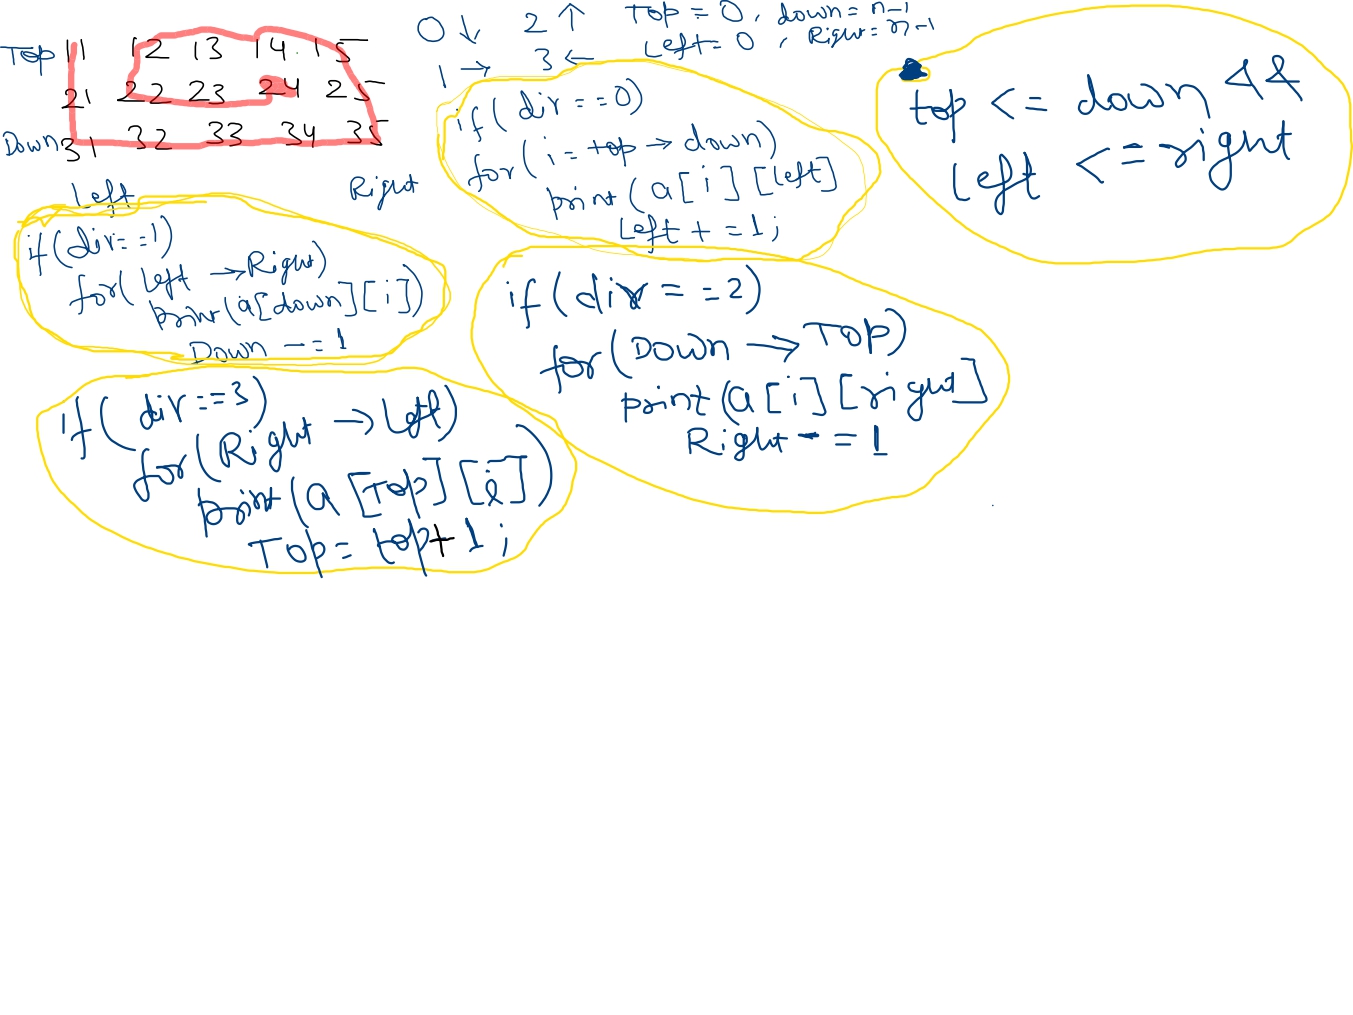 Top 11 12 13 14 15
21 22 23 24 25
Down 31 32 33 34 35
Left Right
0 ↓ 2 ↑
1 → 3 ←
Top = 0, down = n-1
Left = 0, Right = n-1
if(dir==0)
for(i=top→down)
print(a[i][left]
Left+=1;
top <= down &&
left <= right
if(dir==1)
for(left→Right)
print(a[down][i])
Down-=1
if(dir==2)
for(Down→Top)
print(a[i][right]
Right-=1
if(dir==3)
for(Right→Left)
print(a[Top][i])
Top=top+1;